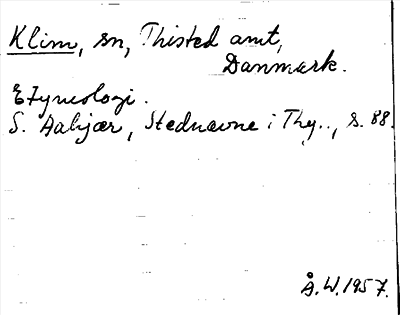 Klim, sn, Thisted amt,
Danmark.
Etymologi.
S. Aakjær, Stednavne i Thy.., s. 88.
Å.W. 1957.